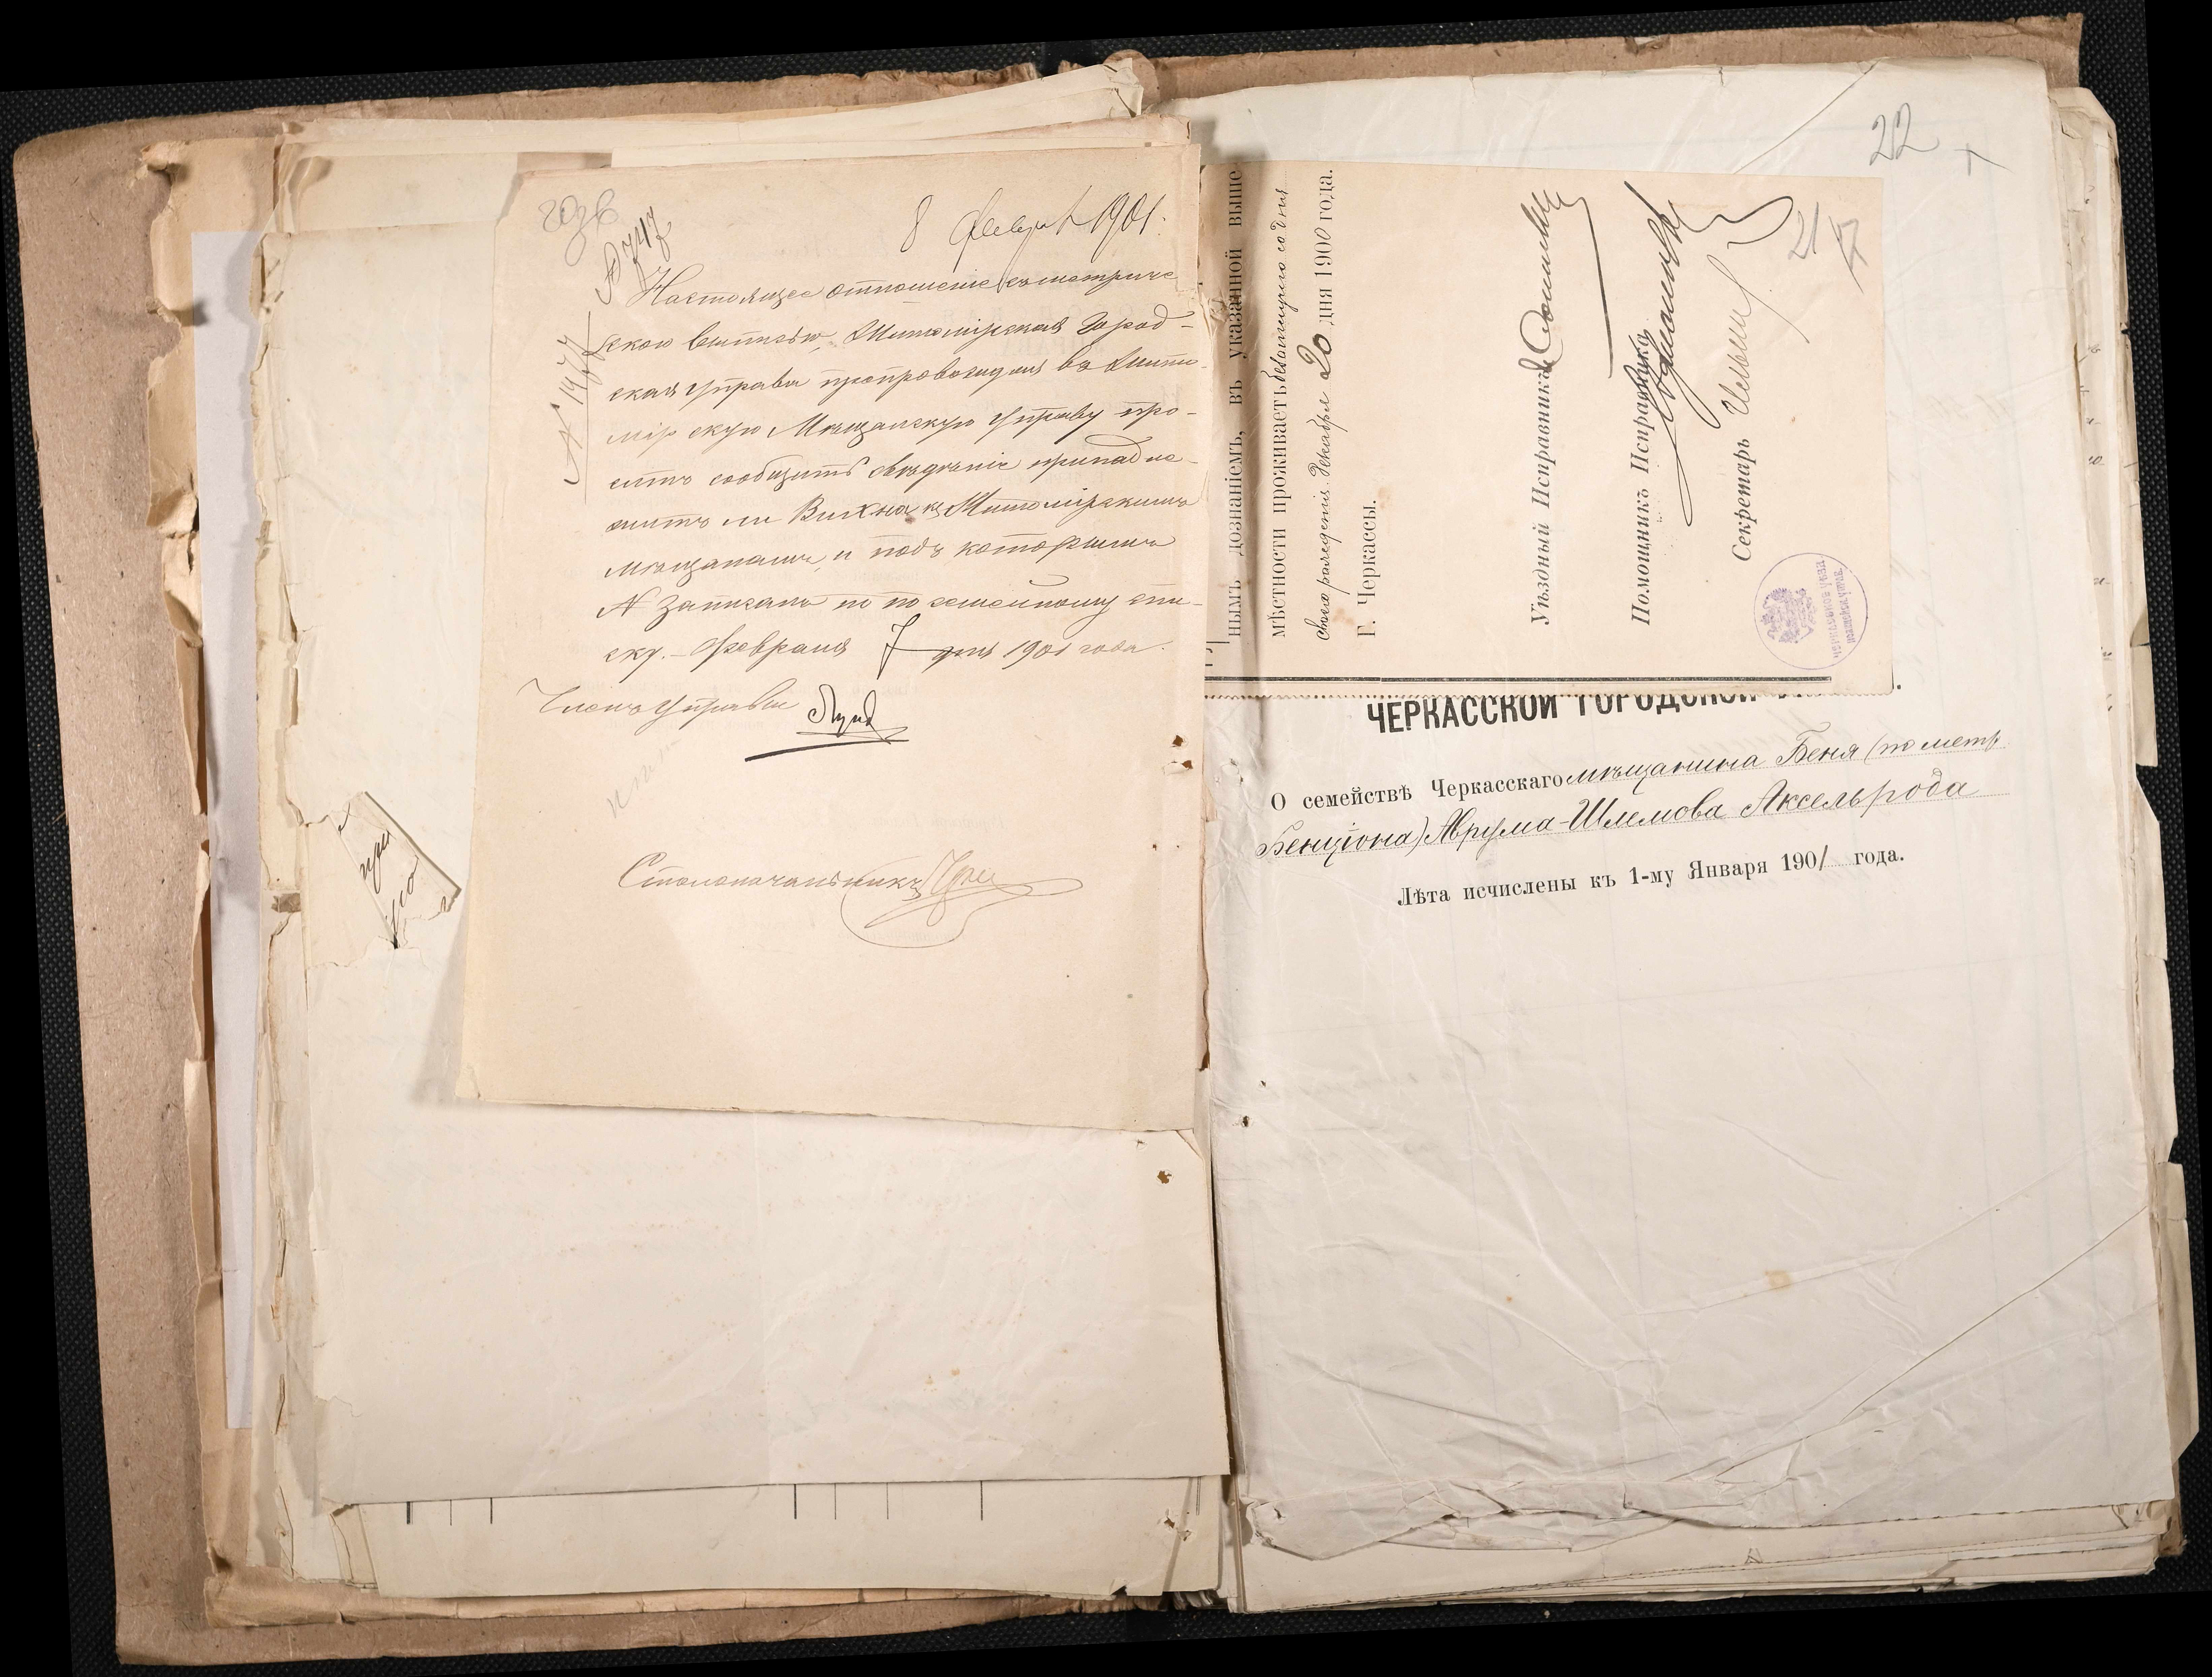 8 февраля 1901.
№ 747
№ 1977
Настоящее отношеніе съ метриче
скою выписью, Житомірская Город-
ская Управа препровождая въ Жито-
мірскую Мѣщанскую Управу про-
ситъ сообщить свѣдѣніе принадле-
житъ ли Вихна къ Житомірскимъ
мѣщанамъ, и подъ которымъ
№ записанъ по посемейному спи-
ску. - Февраля 7 дня 1901 года.
Членъ Управы
Столоначальникъ
22
21
нымъ дознаніемъ, въ указанной выше
мѣстности проживаетъ безотлучно со дня
своего рожденія. Декабря 20 дня 1900 года.
Г. Черкассы.
Уѣздный Исправникъ
Помощникъ Исправника
Секретарь
ЧЕРКАССКОЙ ГОРОДСКОЙ
О семействѣ Черкасскаго мѣщанина Беня (по метр
Бенціона) Аврума-Шлемова Аксельрода
Лѣта исчислены къ 1-му Января 1901 года.